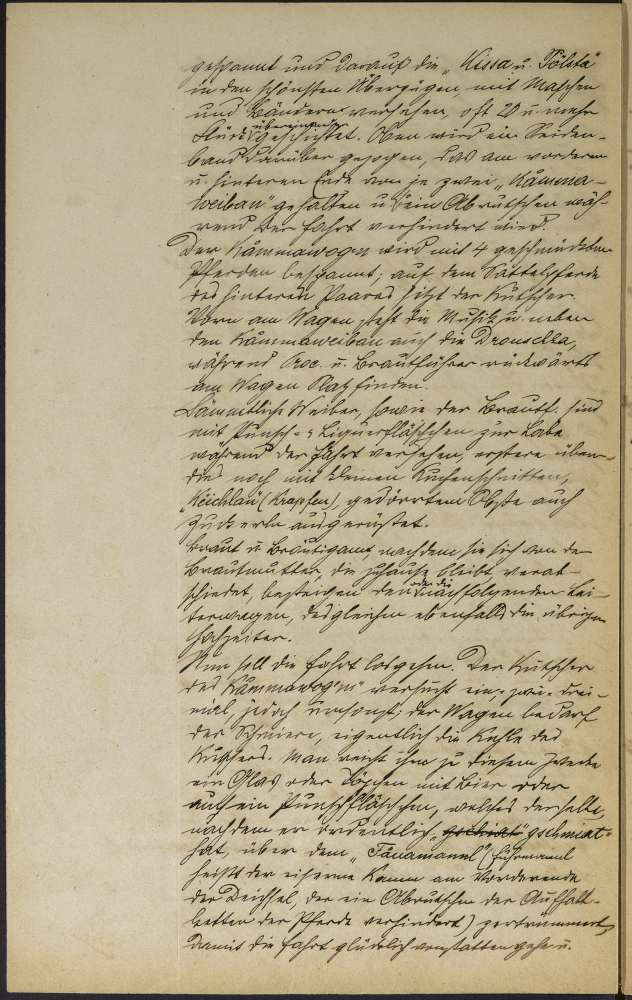 gespannt und darauf die „Kissa u. Pölsta"
in den schönsten Überzügen, mit Maschen
und Bändern versehen, oft 20 u. mehr
Stück übereinander geschichtet. Oben wird ein Seiden-
band darüber gezogen, das am vorderen
u. hinteren Ende von je zwei „Kåmma-
weiban" gehalten u. sein Abrutschen wäh-
rend der Fahrt verhindert wird.
Der Kåmmawogn wird mit 4 geschmückten
Pferden bespannt; auf dem Sattelpferde
des hinteren Paares sitzt der Kutscher.
Vorn am Wagen steht die Musik u. neben
den Kåmmaweiban auch die Drouschla,
während Proc. u. Brautführer rückwärts
am Wagen Platz finden.
Sämmtliche Weiber, sowie der Brautf. sind
mit Punsch- u. Liquerfläschchen zur Labe
während der Fahrt versehen, erstere über-
dies noch mit kleinen Kuchenschnitten,
„Këichlan" (Krapfen), gedörrtem Obste auch
Zuckerln ausgerüstet.
Braut u. Bräutigam, nachdem sie sich von der
Brautmutter, die zuhause bleibt verab-
schiedet, besteigen den oder die nachfolgenden Lei-
terwagen, desgleichen ebenfalls die übrigen
Hochzeiter.
Nun soll die Fahrt losgehen. Der Kutscher
des „Kåmmawog'ns" versucht ein- zwei- drei-
mal, jedoch umsonst; der Wagen bedarf
der Schmiere, eigentlich die Kehle des
Kutschers. Man reicht ihm zu diesem Zwecke
ein Glas oder Töpfchen mit Bier oder
auch ein Punschfläschchen, welches derselbe,
nachdem er ordentlich „gschmiat"
hat, über dem „Fåuamannl" (Fuhrmannl
heisst der eiserne Kamm am Vorderende
der Deichsel, der ein Abrutschen der Aufhalt-
ketten der Pferde verhindert) zertrümmert,
damit die Fahrt glücklich vonstatten gehe u.